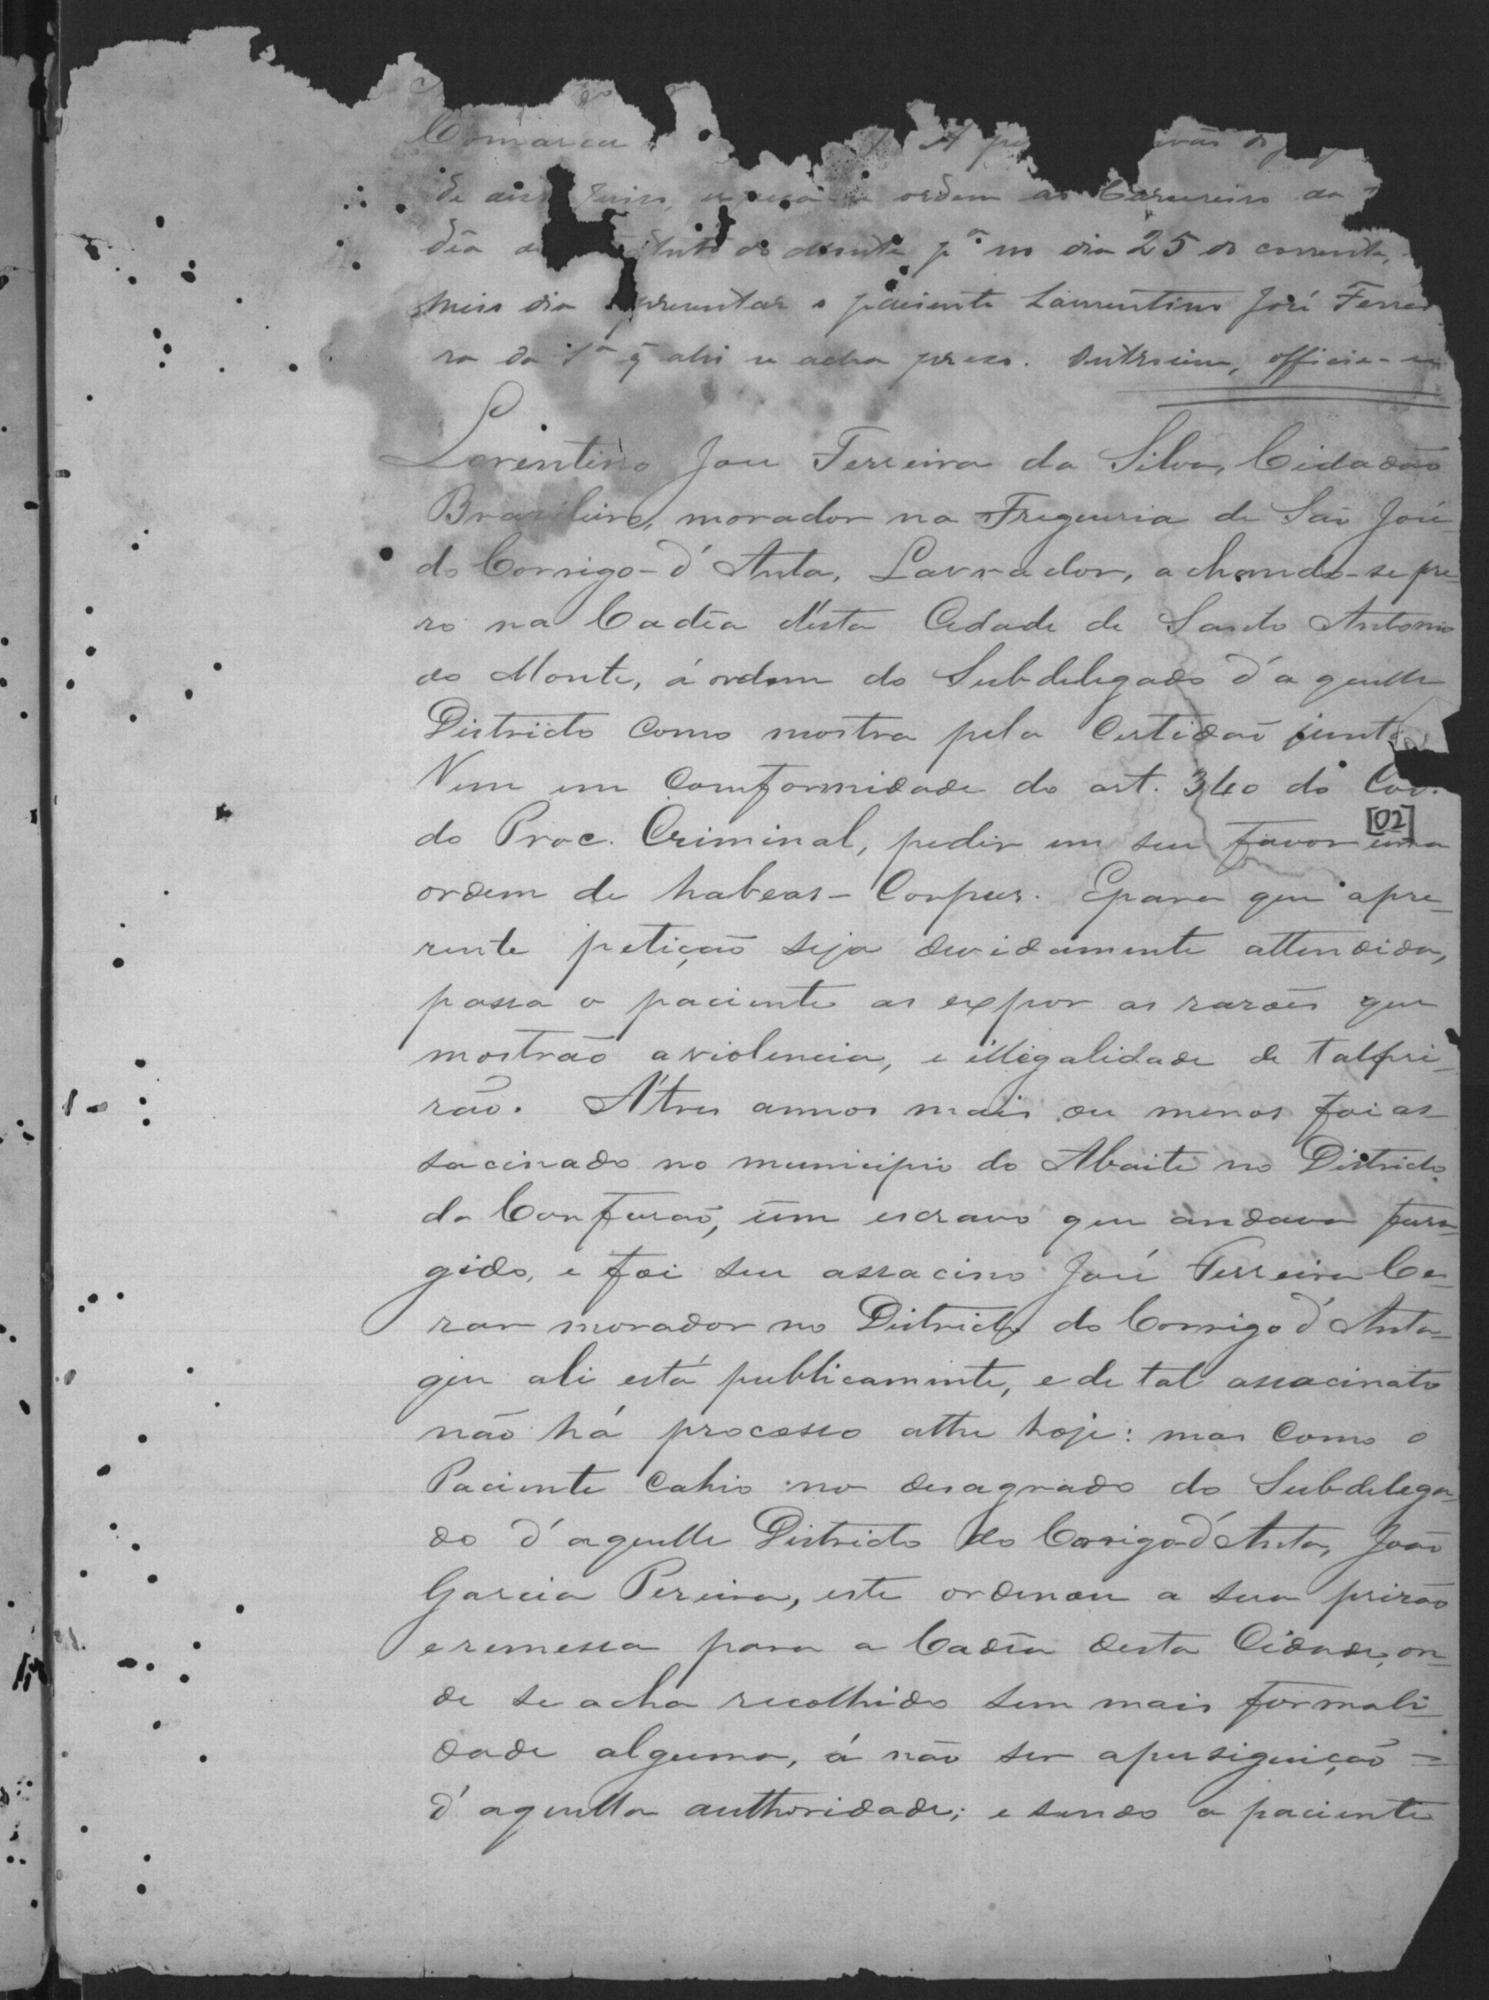 Comarca
ordem ao Carcereiro da
25 do corrente,
meio dia apresentar o paciente Laurentino José Ferrei
ra da Sª q̃ ahi se acha preso. Outrosim, officie-se
Lorentino José Ferreira da Silva, Cidadão
Brasileiro, morador na Freguesia de São José
do Corrigo-d'Anta, Lavrador, achando-se pre-
so na Cadêa d'ésta Cidade de Santo Antonio
do Monte, á ordem do Subdelegado d'aquelle
Districto como mostra pela Certidaõ junta
Vem em Comformidade do art. 340 do Cod.
do Proc. Criminal, pedir em seu favor uma
[02]
ordem de habeas-Corpus. Epara que apre-
sente petição seja devidamente attendida,
passa o paciente as expor as rasões que
mostrão aviolencia, e illegalidade de talpri-
são. A'tres annos mais ou menos foi as
sacinado no municipio do Abaité no Districto
da Confusaõ, um escravo que andava fu
gido, e foi seu assacino José Ferreira Ce-
sar morador no Districto do Corrigo d'Anta
que ali está publicamente, e de tal assacinato
não há processo athe hoje: mas como o
Paciente cahio no desagrado do Subdelega
do d'aquelle Districto do Corrigo-d'Anta, João
Garcia Pereira, este ordenou a sua prisão
eremessa para a Cadêa desta Cidade, on-
de se acha recolhido sem mais formali
dade alguma, á não ser apersiguiçaõ =
d'aquella authoridade; e sendo o paciente